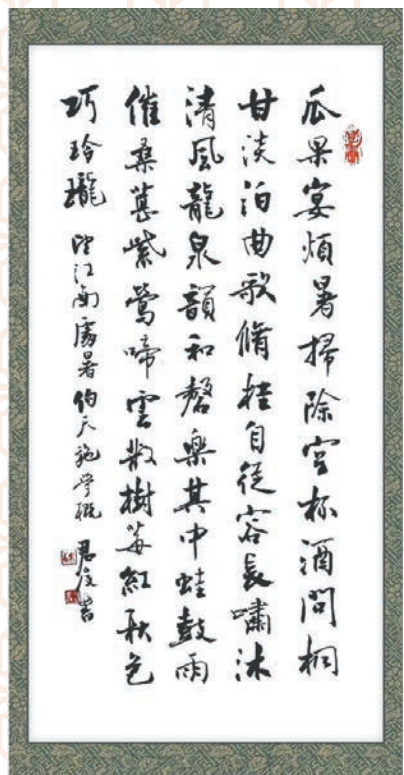 瓜果宴煩暑掃除空杯酒問桐
甘淡泊曲歌脩桂自從容長嘯沐
清風龍泉韻和磬樂其中蛙鼓雨
催桑葚紫鶯啼雲散樹莓紅秋色
巧玲瓏 望江南處暑 伯天施學概 書